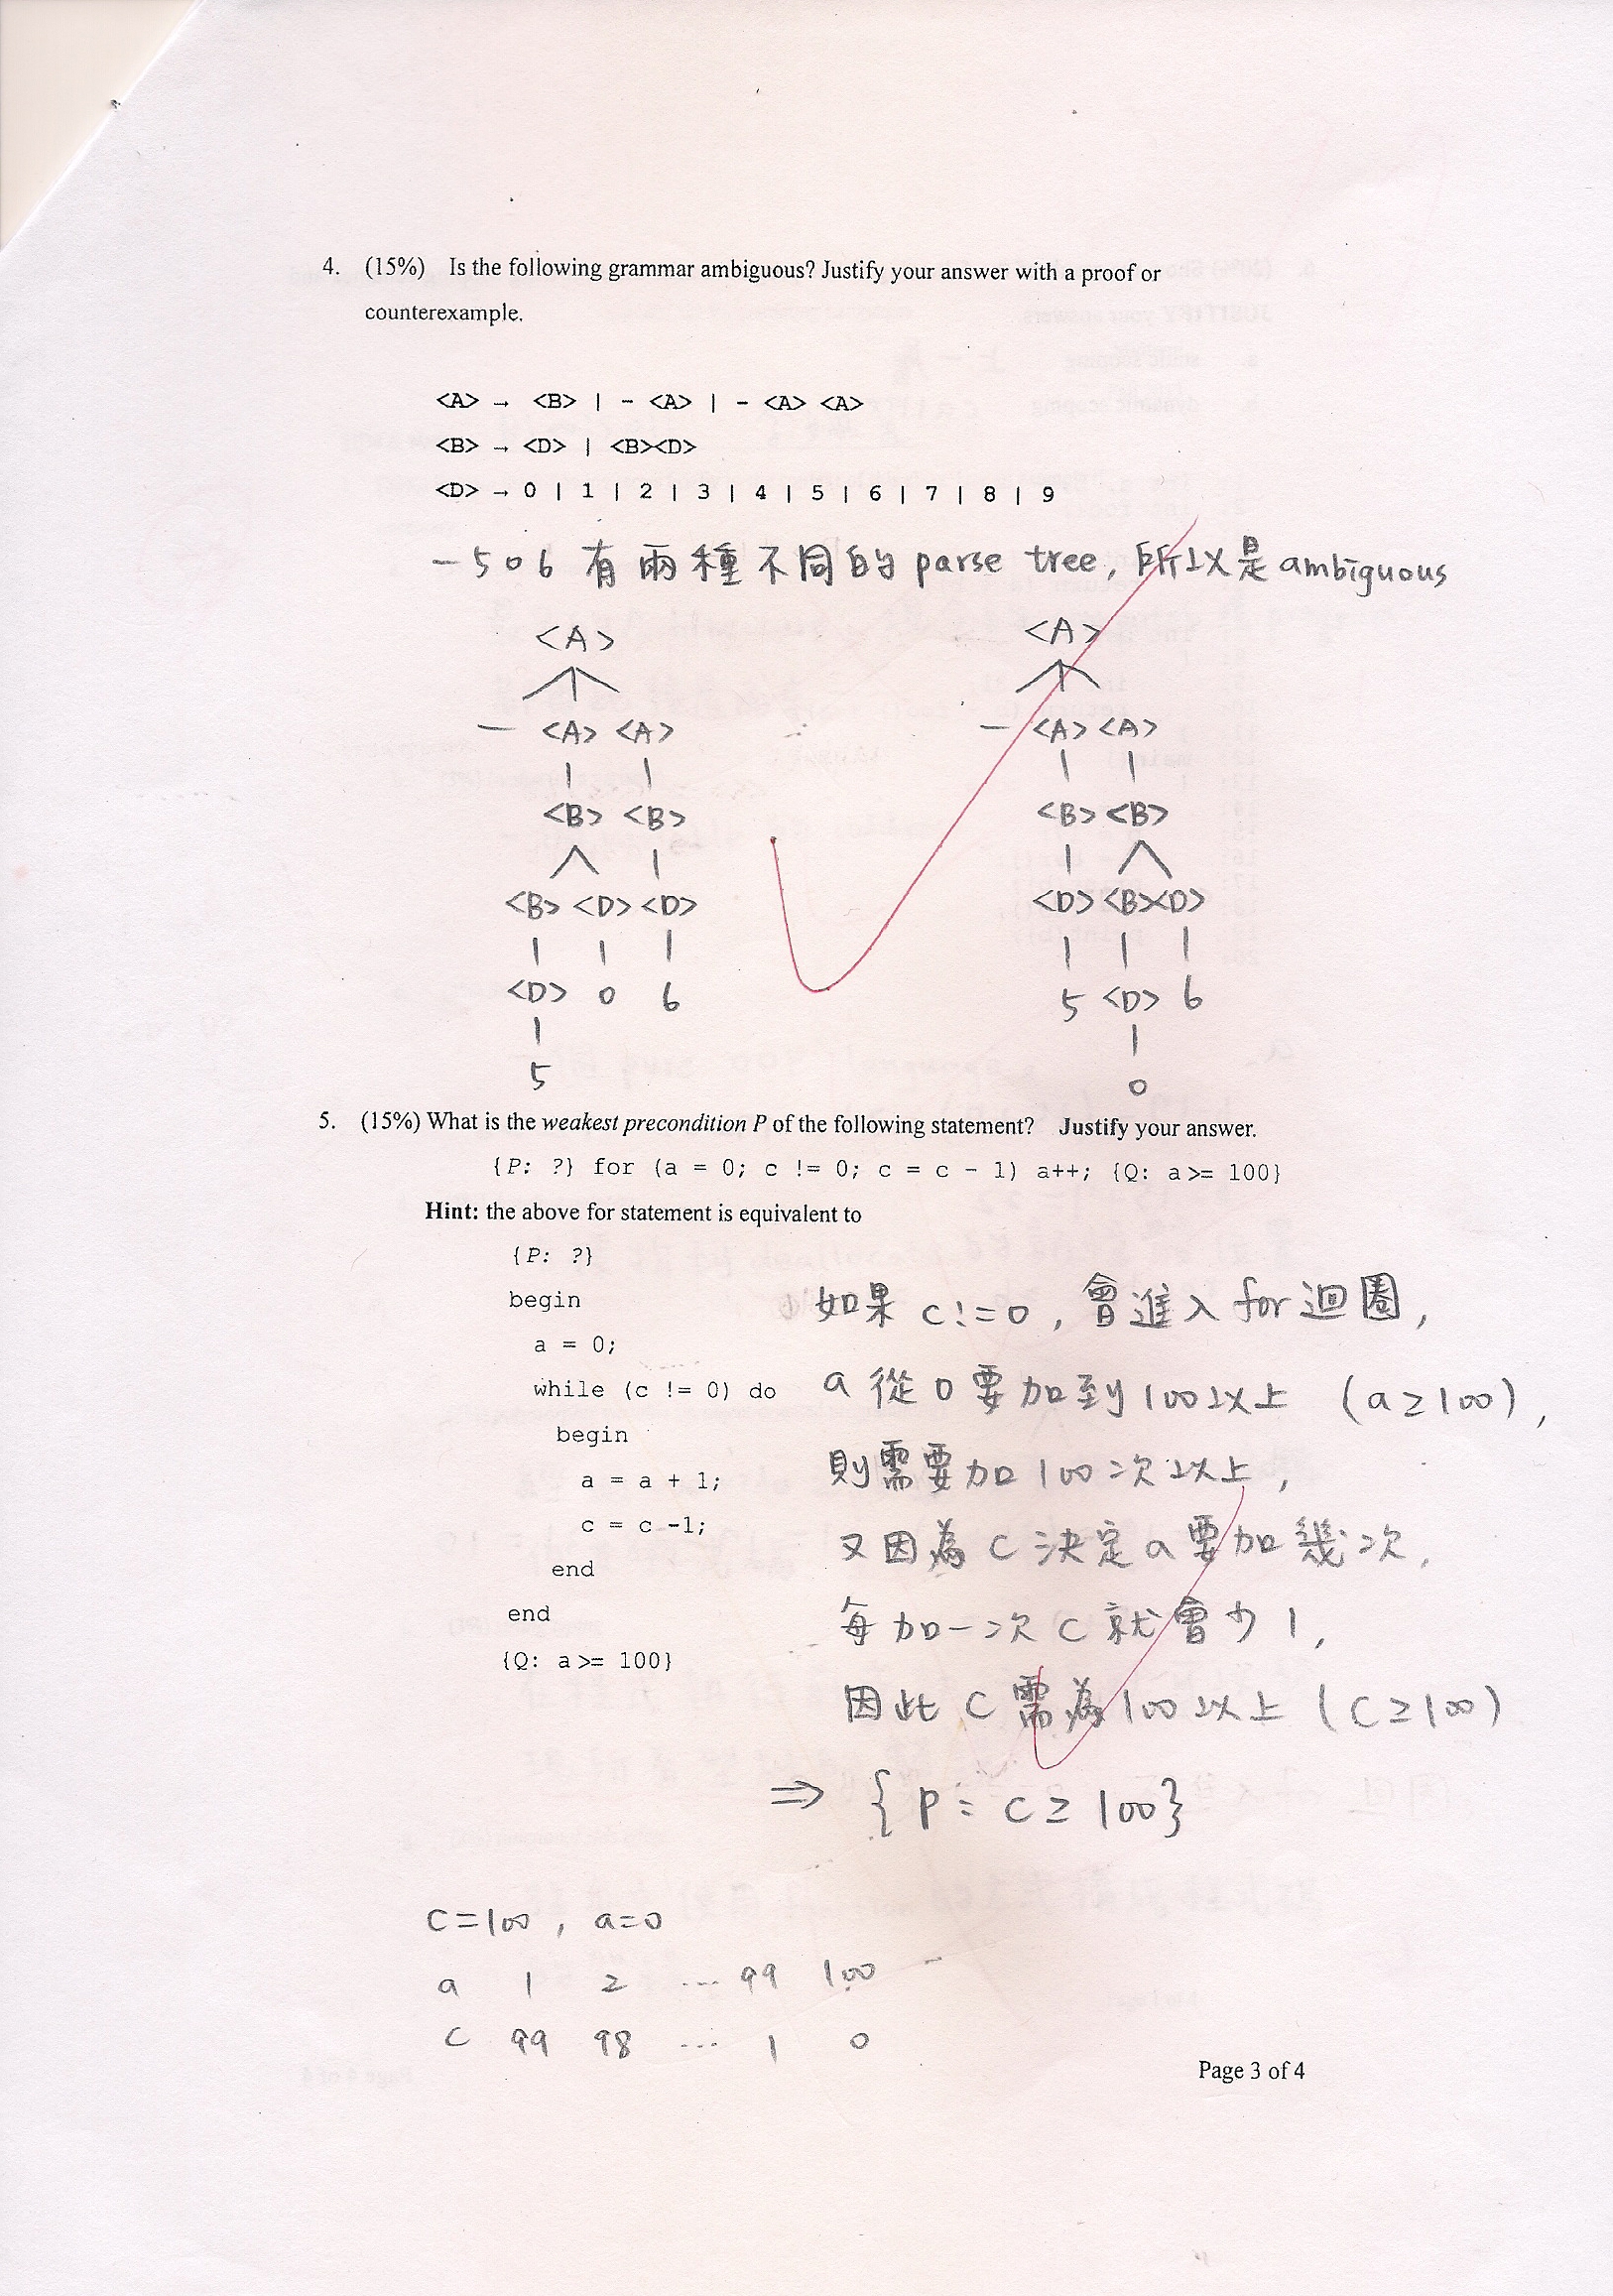 4. (15%) Is the following grammar ambiguous? Justify your answer with a proof or
counterexample.
<A> → <B> | - <A> | - <A> <A>
<B> → <D> | <B><D>
<D> → 0 | 1 | 2 | 3 | 4 | 5 | 6 | 7 | 8 | 9
-506 有兩種不同的 parse tree, 所以是 ambiguous
<A> <A>
- <A> <A> - <A> <A>
<B> <B> <B> <B>
<B> <D> <D> <D> <B><D>
<D> 0 6 5 <D> 6
5 0
5. (15%) What is the weakest precondition P of the following statement? Justify your answer.
{P: ?} for (a = 0; c != 0; c = c - 1) a++; {Q: a >= 100}
Hint: the above for statement is equivalent to
{P: ?}
begin
a = 0;
while (c != 0) do
begin
a = a + 1;
c = c -1;
end
end
{Q: a >= 100}
如果 c!=0, 會進入 for 迴圈,
a 從 0 要加到 100 以上 (a≥100),
則需要加 100 次以上,
又因為 c 決定 a 要加幾次,
每加一次 c 就會少 1,
因此 c 需為 100 以上 (c≥100)
⇒ {P: c≥100}
c=100, a=0
a 1 2 ... 99 100
c 99 98 ... 1 0
Page 3 of 4